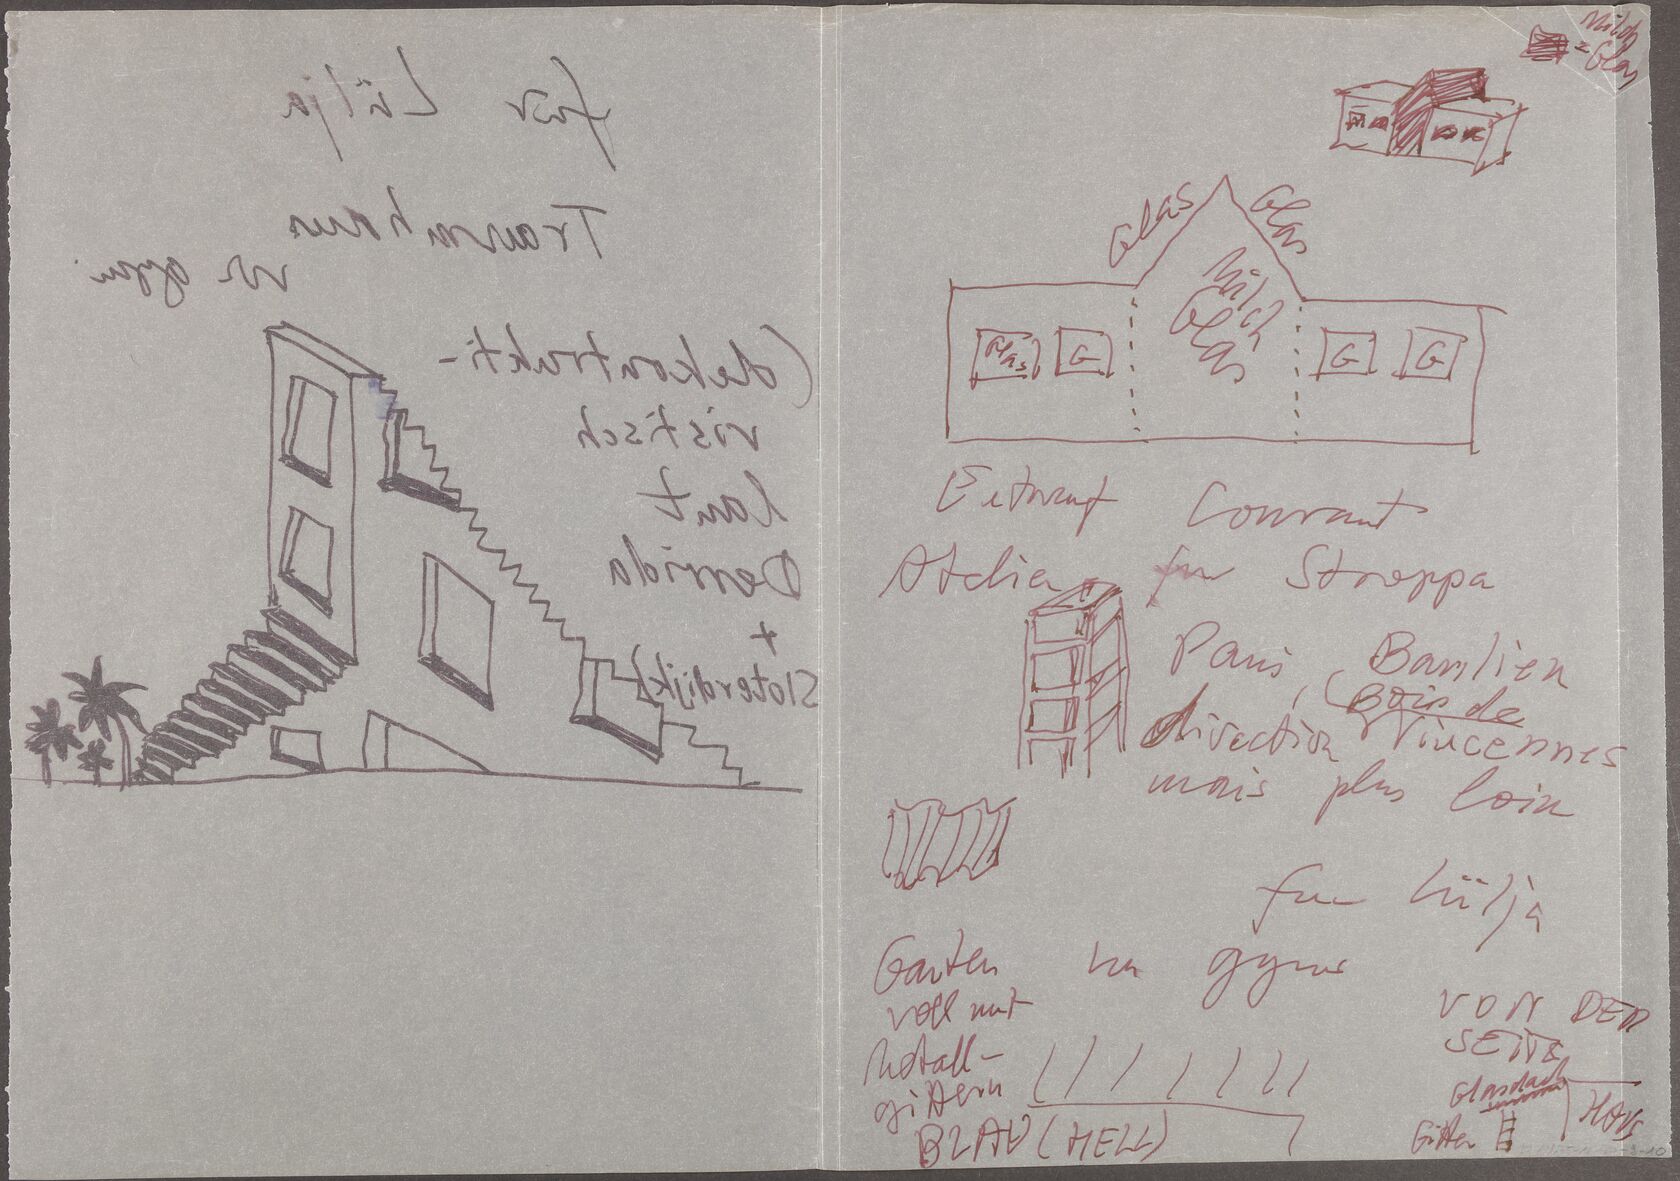 für Lülja
Traumhaus
von gyuri
(dekontrukti-
vistisch
laut
Derrida
+
Sloterdijk)
Milch
= Glas
GLAS
Glas
Milch
Glas
Glas
G
G
G
Entwurf Couvrant
Atelier fur Stroppa
Paris, Banlieu
(Bois de
direction Vincennes
mais plus loin
fur Lülja
Garten von gyuri
voll mit
Metall-
gittern
BLAU (HELL)
VON DER
SEITE
Glasdach
HAUS
Gitter